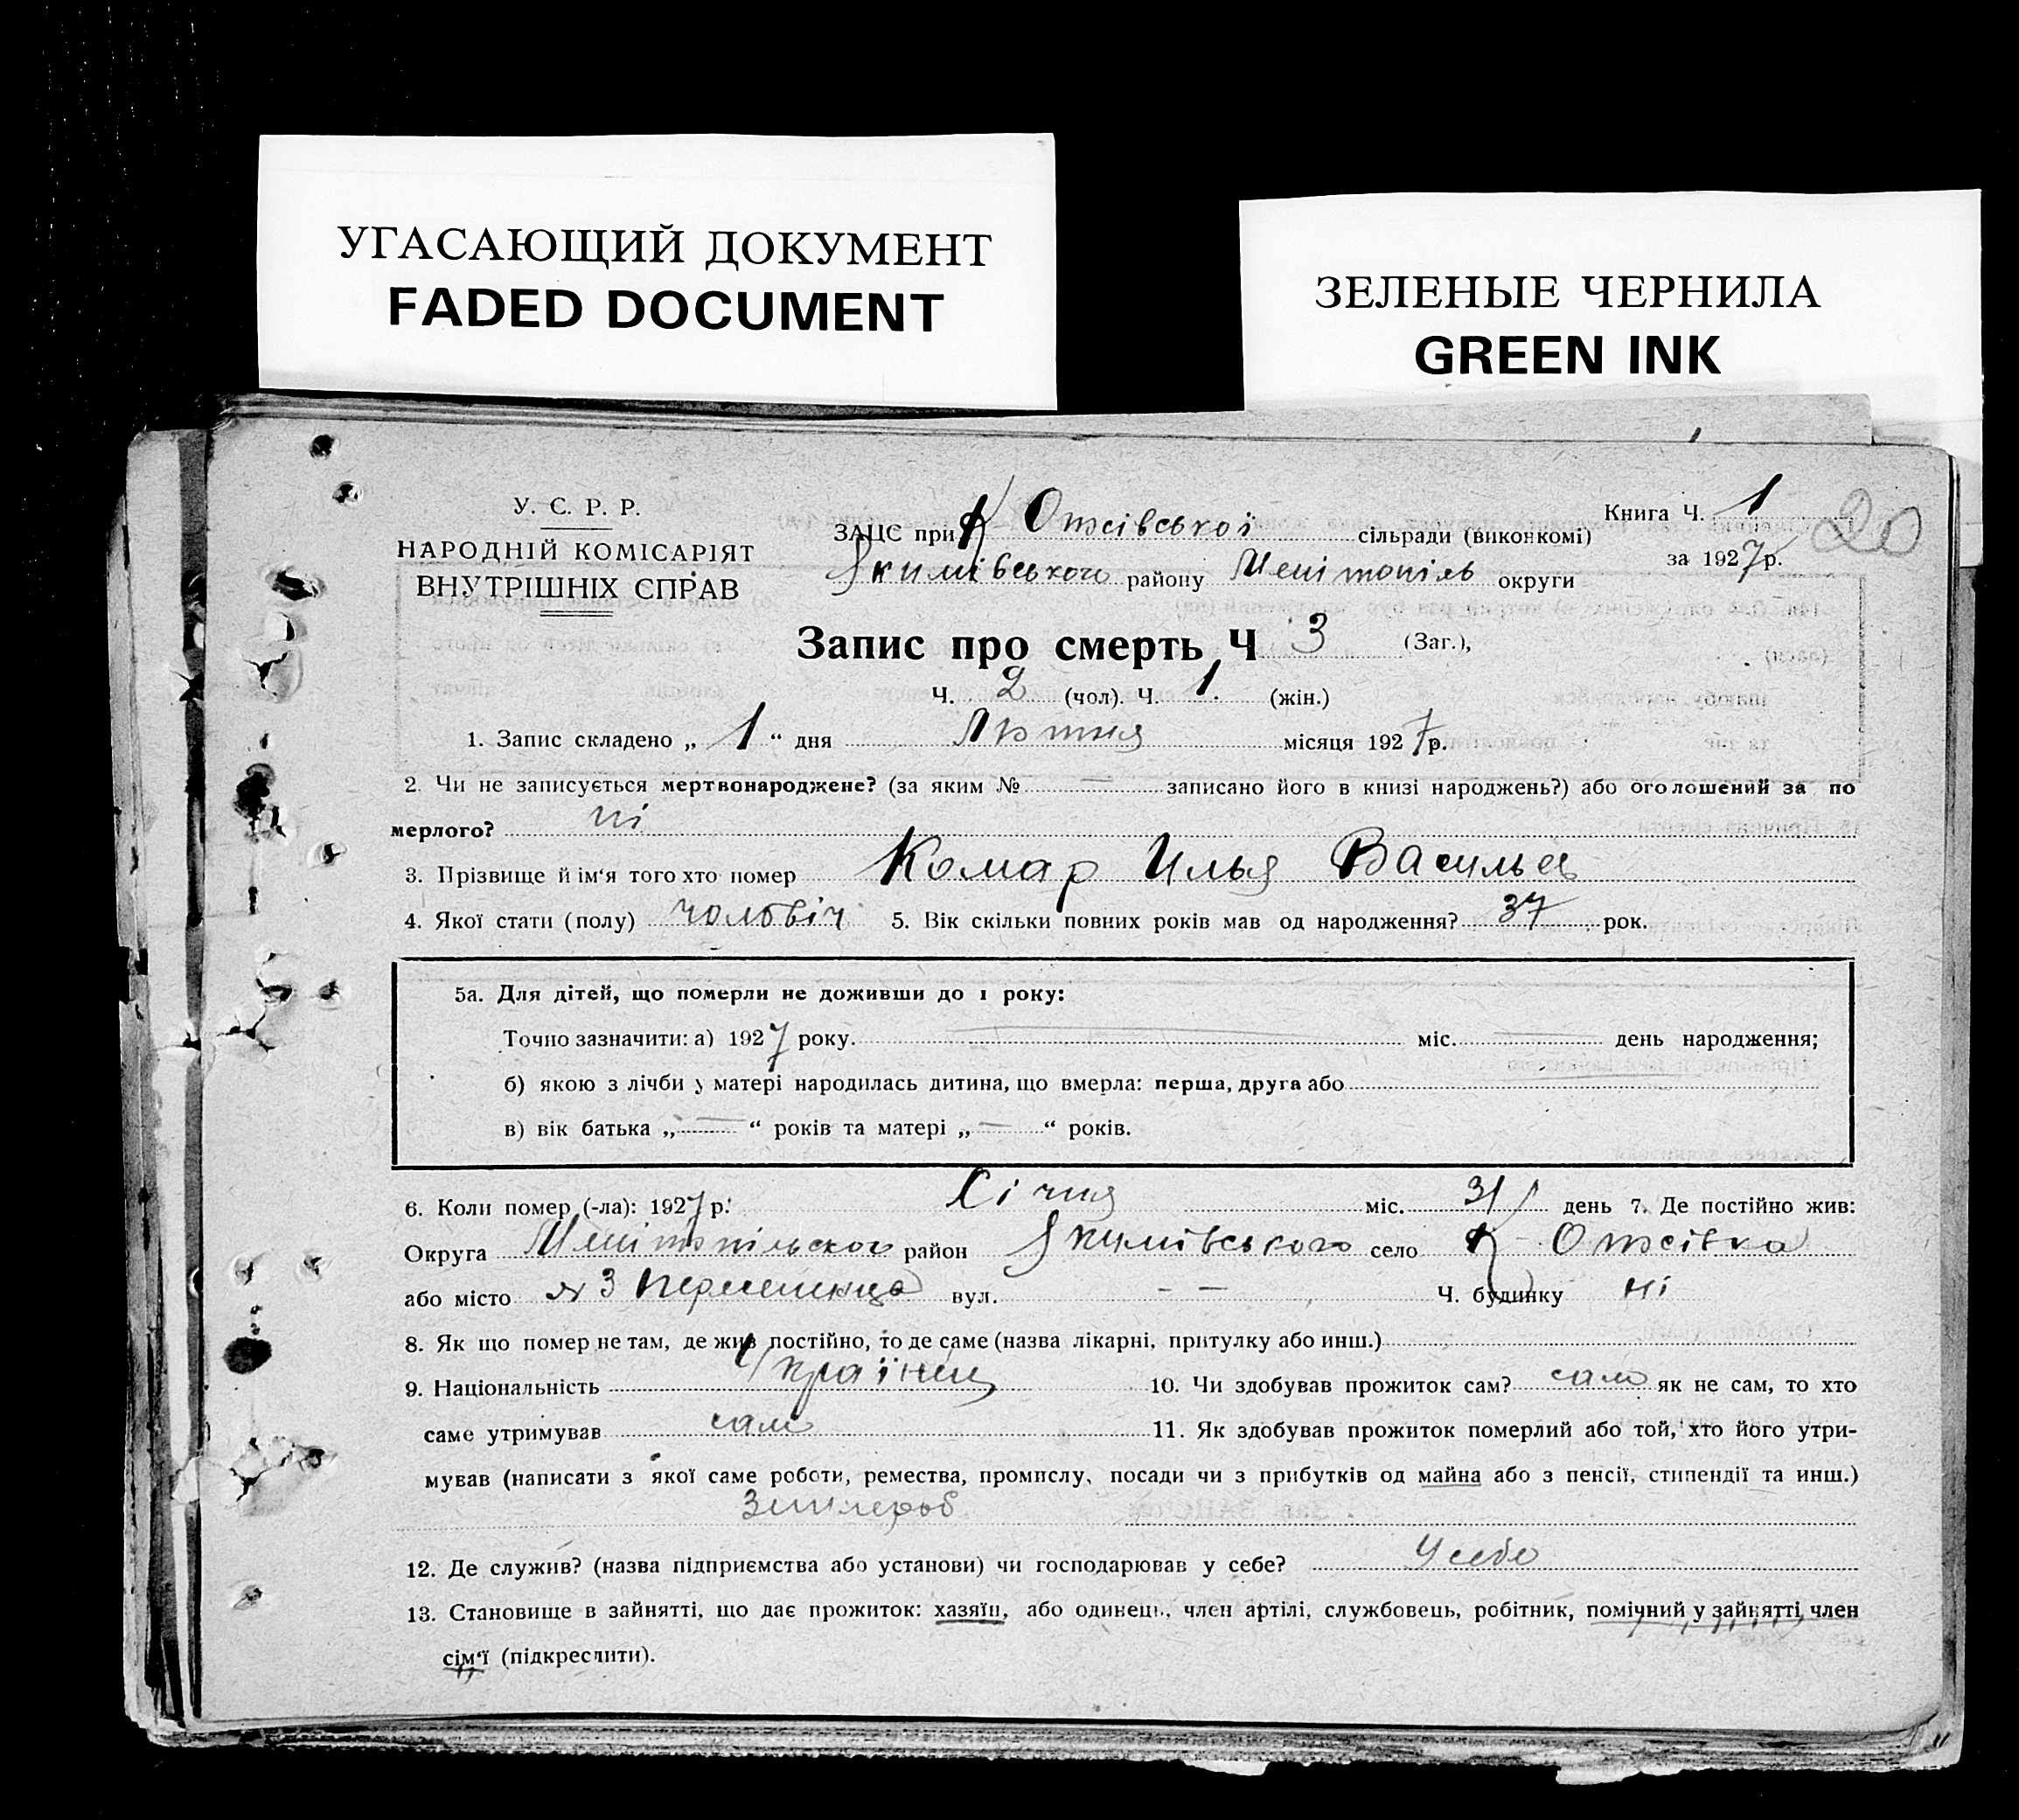 УГАСАЮЩИЙ ДОКУМЕНТ
FADED DOCUMENT
ЗЕЛЕНЫЕ ЧЕРНИЛА
GREEN INK
У. С. Р. Р.
НАРОДНІЙ КОМІСАРІЯТ
ВНУТРІШНІХ СПРАВ
ЗАЦС при К Отсівської сільради (виконкомі)
Якимівського району Мелітопіль округи
Книга Ч. 1
за 1927 р.
20
Запис про смерть Ч 3 (Заг.),
Ч. 2 (чол). Ч. 1. (жін.)
1. Запис складено „ 1 “ дня Лютня місяця 1927 р.
2. Чи не записується мертвонароджене? (за яким № — записано його в книзі народжень?) або оголошений за по
мерлого? ні
3. Прізвище й ім‘я того хто помер Комар Илья Васильев
4. Якої стати (полу) чоловіч 5. Вік скільки повних років мав од народження? 37 рок.
5а. Для дітей, що померли не доживши до 1 року:
Точно зазначити: а) 1927 року. — міс. — день народження;
б) якою з лічби у матері народилась дитина, що вмерла: перша, друга або
в) вік батька „ — “ років та матері „ — “ років.
6. Коли помер (-ла): 1927 р. Січня міс. 31 день 7. Де постійно жив:
Округа Мелітопільског район Якимівського село К- Отсівка
або місто вул. - - Ч. будинку ні
8. Як що помер не там, де жив постійно, то де саме (назва лікарні, притулку або инш.)
9. Національність Українец 10. Чи здобував прожиток сам? сам як не сам, то хто
саме утримував сам 11. Як здобував прожиток померлий або той, хто його утри-
мував (написати з якої саме роботи, ремества, промислу, посади чи з прибутків од майна або з пенсії, стипендії та инш.)
Землероб
12. Де служив? (назва підприємства або установи) чи господарював у себе? У себе
13. Становище в зайнятті, що дає прожиток: хазяїн, або одинець, член артілі, службовець, робітник, помічний у зайнятті, член
сім‘ї (підкреслити).